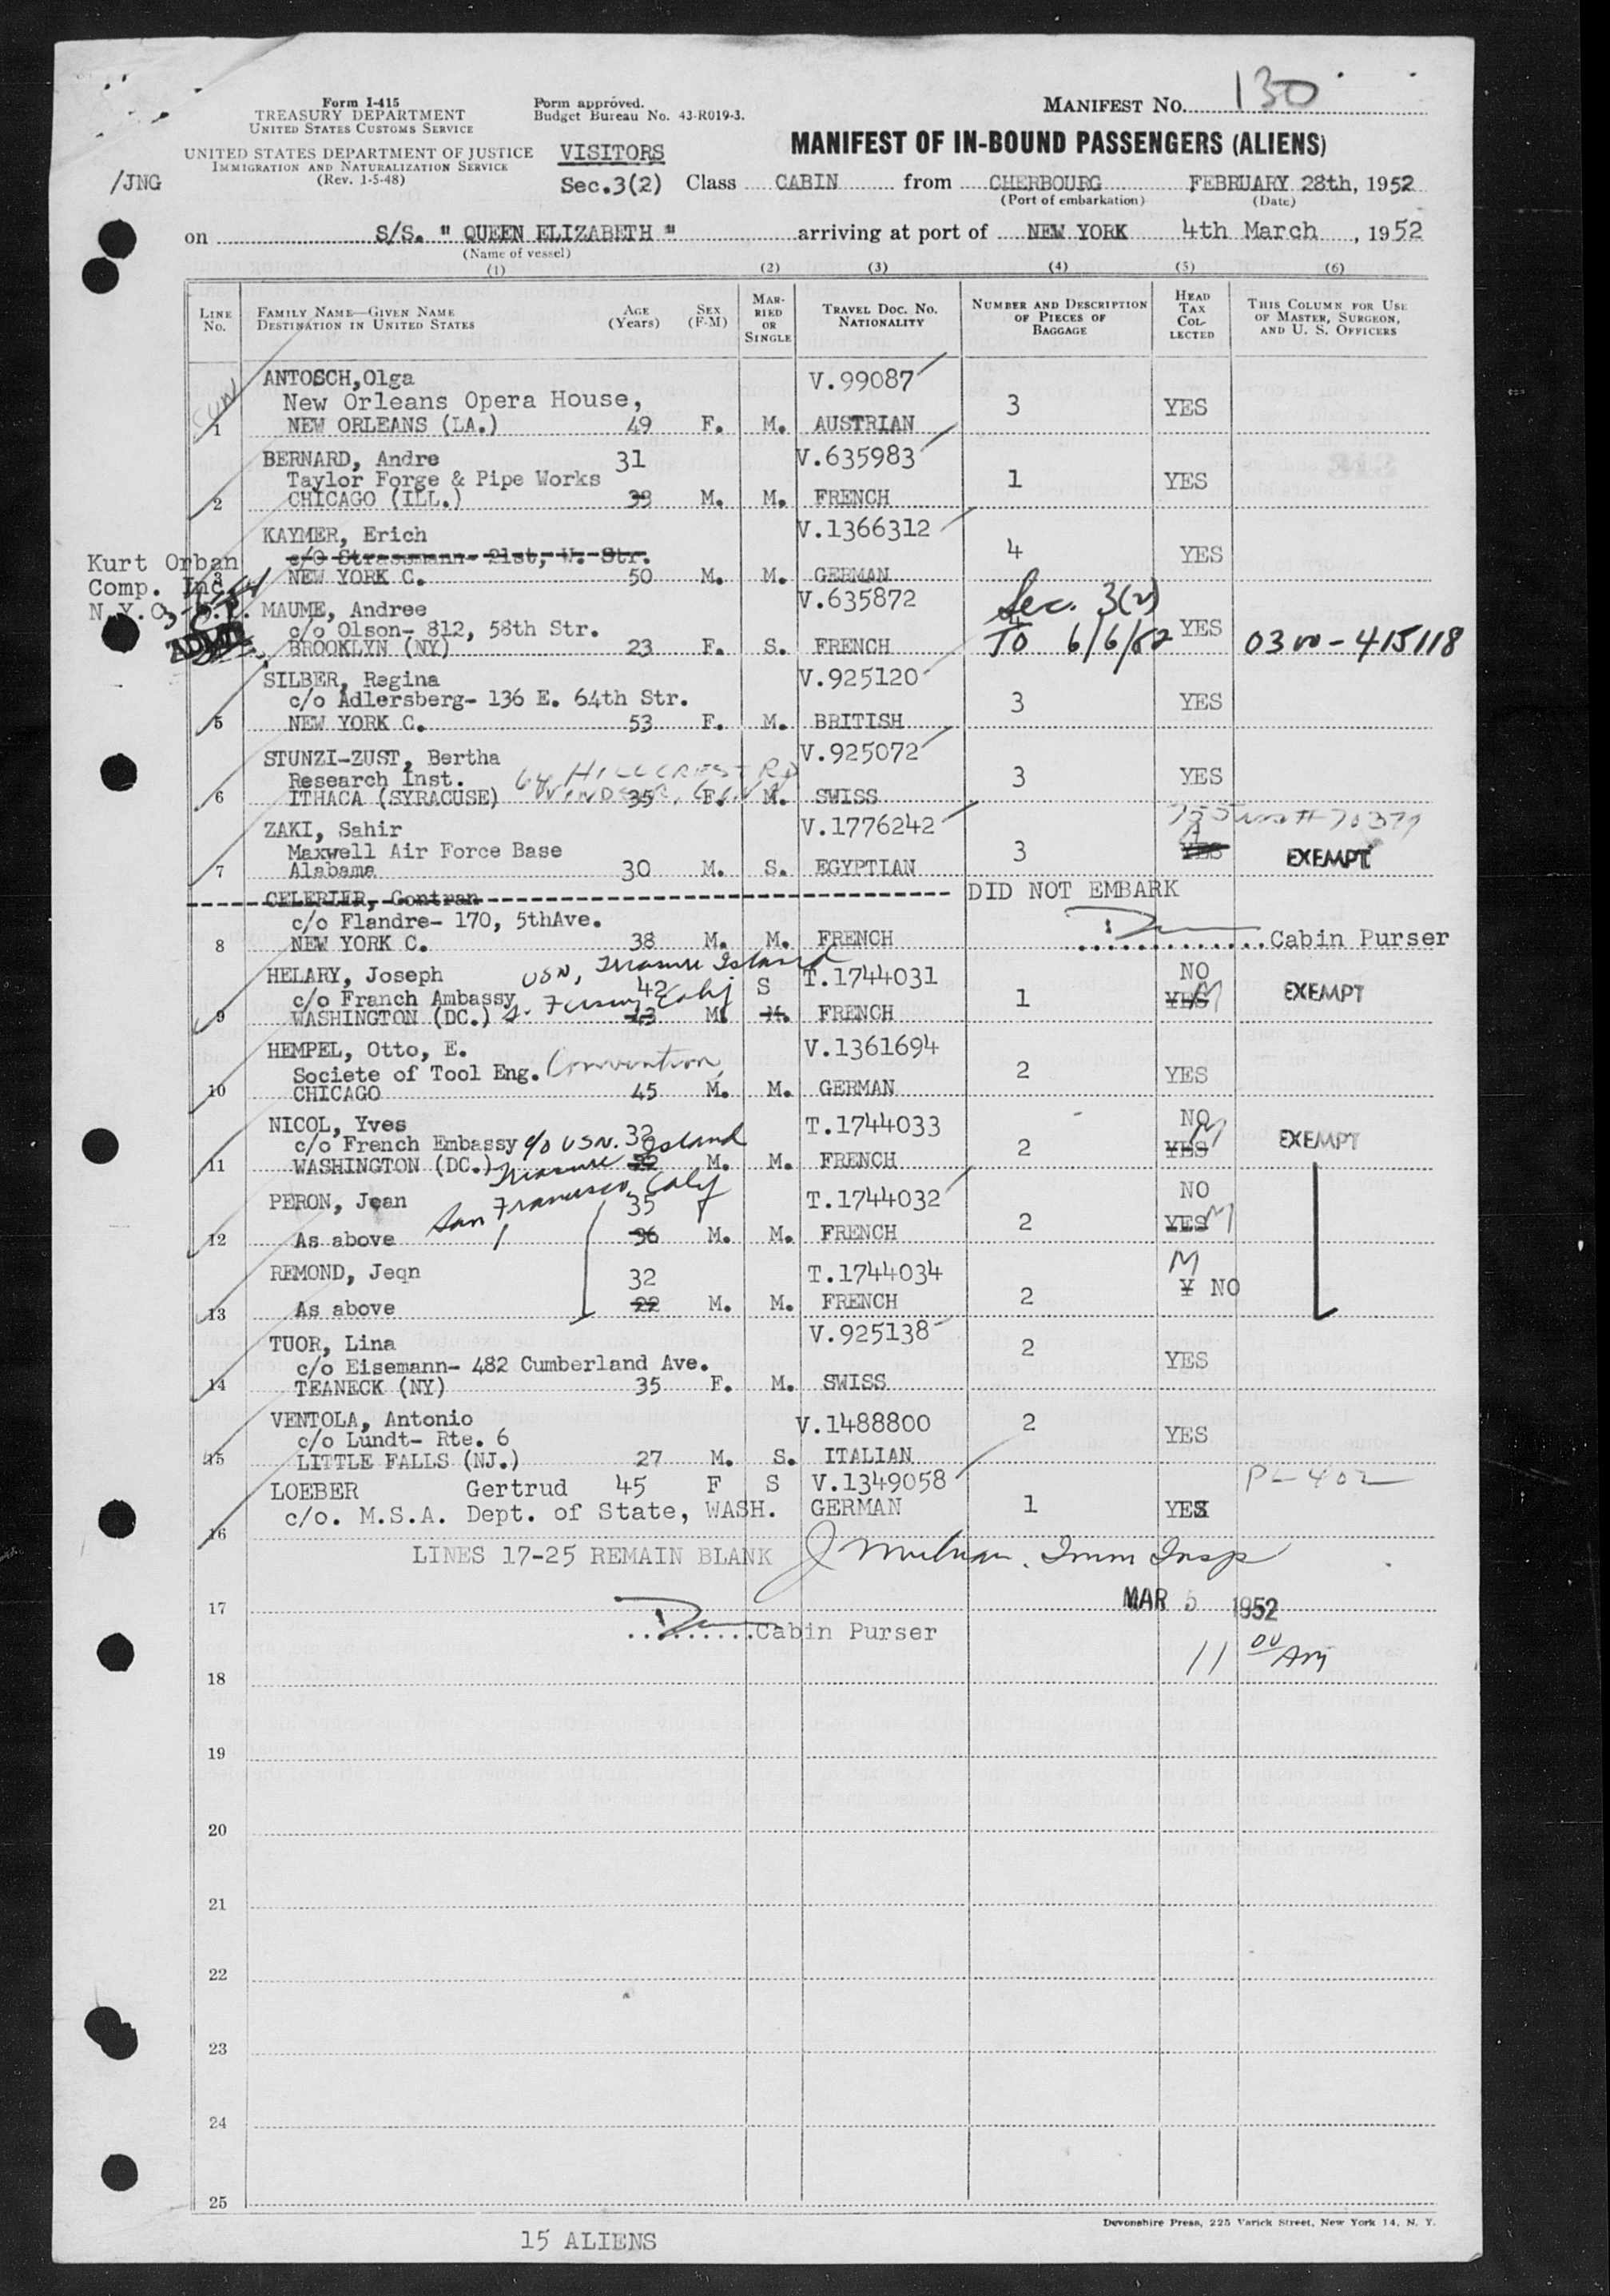 Form I-415
TREASURY DEPARTMENT
UNITED STATES CUSTOMS SERVICE
UNITED STATES DEPARTMENT OF JUSTICE
IMMIGRATION AND NATURALIZATION SERVICE
(Rev. 1-5-48)
/JNG
Form approved.
Budget Bureau No. 43-R019-3.
MANIFEST No. 130
MANIFEST OF IN-BOUND PASSENGERS (ALIENS)
VISITORS
Sec.3(2) Class CABIN from CHERBOURG FEBRUARY 28th, 1952
(Port of embarkation) (Date)
on S/S. " QUEEN ELIZABETH " arriving at port of NEW YORK 4th March, 1952
(Name of vessel)
(1) (2) (3) (4) (5) (6)
LINE No. FAMILY NAME—GIVEN NAME DESTINATION IN UNITED STATES AGE (Years) SEX (F-M) MARRIED OR SINGLE TRAVEL DOC. NO. NATIONALITY NUMBER AND DESCRIPTION OF PIECES OF BAGGAGE HEAD TAX COLLECTED THIS COLUMN FOR USE OF MASTER, SURGEON, AND U. S. OFFICERS
ANTOSCH,Olga V.99087
New Orleans Opera House, 3 YES
1 NEW ORLEANS (LA.) 49 F. M. AUSTRIAN
BERNARD, Andre 31 V.635983
Taylor Forge & Pipe Works 1 YES
2 CHICAGO (ILL.) 33 M. M. FRENCH
KAYMER, Erich V.1366312
Kurt Orban c/O Strassmann- 21st, W. Str. 4 YES
Comp. Inc. 3 NEW YORK C. 50 M. M. GERMAN
N.Y.C. MAUME, Andree V.635872 Sec. 3(2)
c/o Olson- 812, 58th Str. 4 YES
BROOKLYN (NY) 23 F. S. FRENCH TO 6/6/52 0300-415118
SILBER, Regina V.925120
c/o Adlersberg- 136 E. 64th Str. 3 YES
5 NEW YORK C. 53 F. M. BRITISH
STUNZI-ZUST, Bertha V.925072
Research Inst. 64 HILLCREST RD 3 YES
6 ITHACA (SYRACUSE) WINDSOR, 35 F. M. SWISS
ZAKI, Sahir V.1776242
Maxwell Air Force Base 3 YES EXEMPT
7 Alabama 30 M. S. EGYPTIAN
CELERIER, Gontran DID NOT EMBARK
c/o Flandre- 170, 5thAve.
8 NEW YORK C. 38 M. M. FRENCH Cabin Purser
HELARY, Joseph USN, Treasure Island T.1744031 NO
c/o Franch Ambassy 42 S 1 YES EXEMPT
9 WASHINGTON (DC.) 43 M. M. FRENCH
HEMPEL, Otto, E. V.1361694
Societe of Tool Eng. Convention 2 YES
10 CHICAGO 45 M. M. GERMAN
NICOL, Yves 32 T.1744033 NO
c/o French Embassy c/o USN. Island 2 YES EXEMPT
11 WASHINGTON (DC.) Treasure M. M. FRENCH
San Francisco, Calif
PERON, Jean 35 T.1744032 NO
12 As above 36 M. M. FRENCH 2 YES
REMOND, Jeqn 32 T.1744034 M
Y NO
13 As above 22 M. M. FRENCH 2
TUOR, Lina V.925138 2
c/o Eisemann- 482 Cumberland Ave. YES
14 TEANECK (NY) 35 F. M. SWISS
VENTOLA, Antonio V.1488800 2
c/o Lundt- Rte. 6 YES
15 LITTLE FALLS (NJ.) 27 M. S. ITALIAN
LOEBER Gertrud 45 F S V.1349058 PL 402
c/o. M.S.A. Dept. of State, WASH. GERMAN 1 YES
16
LINES 17-25 REMAIN BLANK Imm Insp
17 MAR 5 1952
Cabin Purser
11 00 AM
18
19
20
21
22
23
24
25
Devonshire Press, 225 Varick Street, New York 14, N. Y.
15 ALIENS